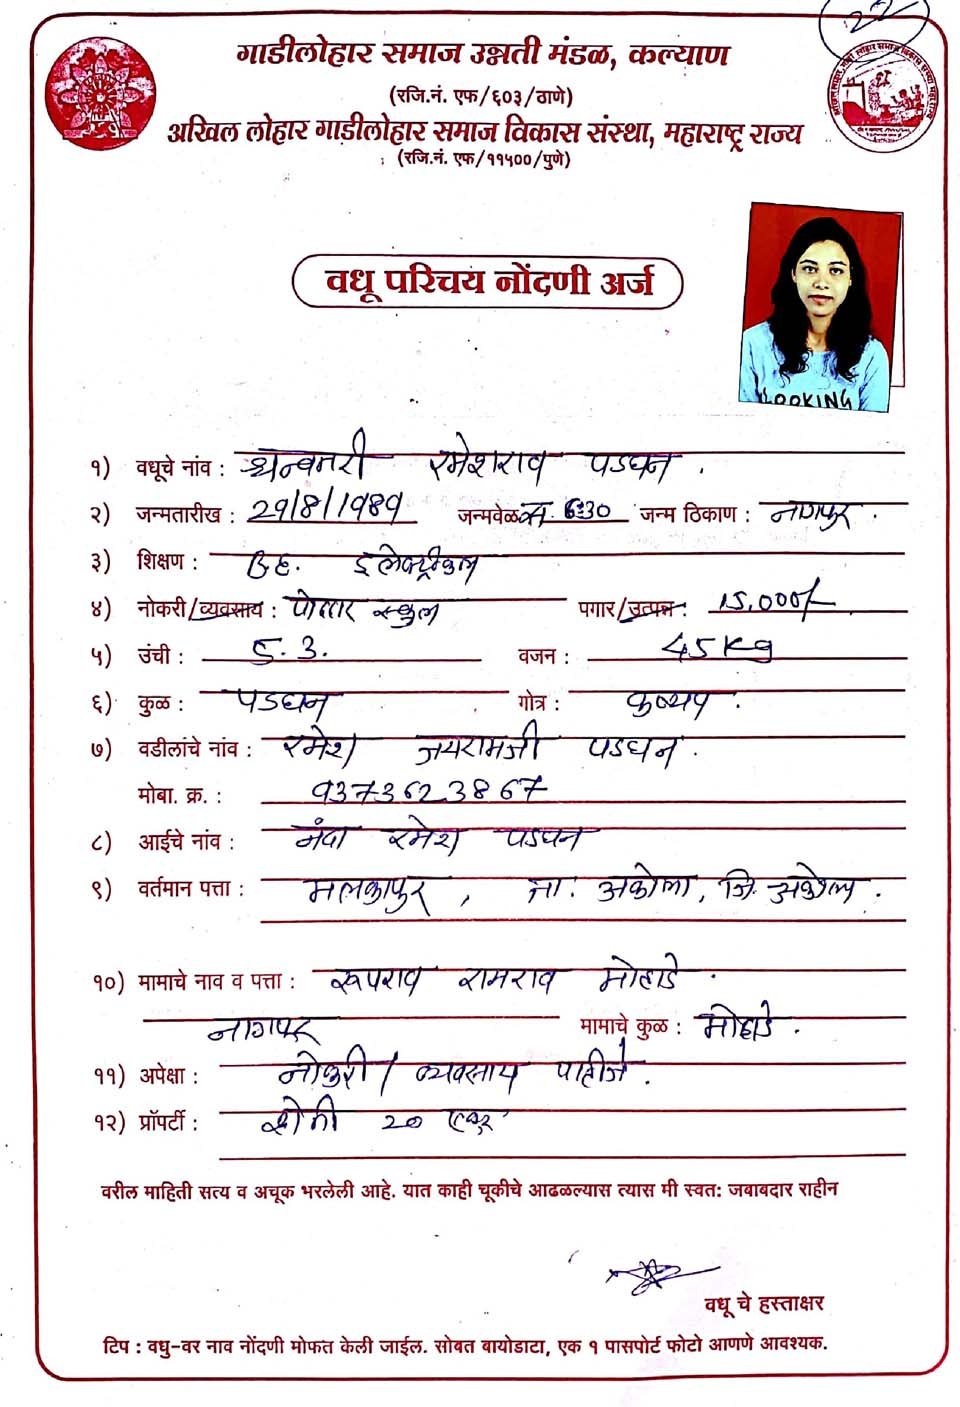 22
गाडीलोहार समाज उन्नती मंडळ, कल्याण
(रजि.नं. एफ/६०३/ठाणे)
अखिल लोहार गाडीलोहार समाज विकास संस्था, महाराष्ट्र राज्य
(रजि.नं. एफ/११५००/पुणे)
वधू परिचय नोंदणी अर्ज
LOOKING
१) वधूचे नांव : धन्वनरी रमेशराव पडघन .
२) जन्मतारीख : 29/8/1989 जन्मवेळ स. 6:30 जन्म ठिकाण : नागपुर .
३) शिक्षण : B.E. इलेक्ट्रीकल
४) नोकरी/व्यवसाय : पोतार स्कुल पगार/उत्पन्न : 15,000/-
५) उंची : 5.3. वजन : 45 Kg
६) कुळ : पडघन गोत्र : कश्यप .
७) वडीलांचे नांव : रमेश जयरामजी पडघन .
मोबा. क्र. : 9373623867
८) आईचे नांव : नंदा रमेश पडघन
९) वर्तमान पत्ता : मलकापुर , ता. अकोला, जि. अकोला .
१०) मामाचे नाव व पत्ता : रूपराव रामराव मोहाडे .
नागपुर मामाचे कुळ : मोहाडे .
११) अपेक्षा : नोकरी / व्यवसाय पाहीजे .
१२) प्रॉपर्टी : शेती 20 एकर
वरील माहिती सत्य व अचूक भरलेली आहे. यात काही चूकीचे आढळल्यास त्यास मी स्वत: जबाबदार राहीन
वधू चे हस्ताक्षर
टिप : वधु-वर नाव नोंदणी मोफत केली जाईल. सोबत बायोडाटा, एक १ पासपोर्ट फोटो आणणे आवश्यक.